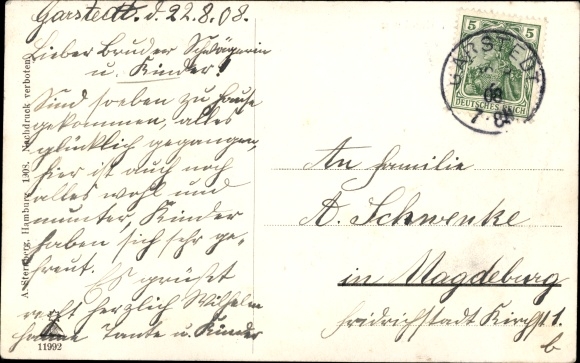 Garstedt. d. 22.8.08.
Lieber Bruder Schwägerin
u. Kinder!
Sind soeben zu Hause
gekommen, alles
glücklich gegangen,
hier ist auch noch
alles wohl und
munter, Kinder
haben sich sehr ge-
freut. Es grüßt
recht herzlich Wilhelm
Tante u. Kinder
A. Sternberg, Hamburg, 1908. Nachdruck verboten.
11992
5 5
DEUTSCHES REICH
GARSTEDT
08
7-8
An Familie
A. Schwenke
in Magdeburg
Fridrichstadt Kirchst 1.
b